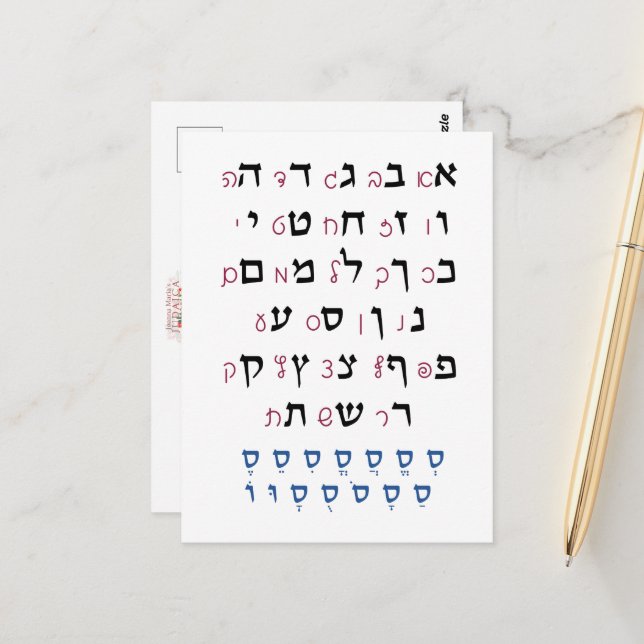 אא בב גג דד הה
וו זז חח טט יי
ככ ךך לל ממ םם
ננ ןן סס עע
פפ ףף צצ ץץ קק
רר שש תת
סְ סֱ סֲ סֳ סִ סֵ סֶ
סַ סָ סֹ סֻ סָ וּ וֹ
JUDAICA
zzle